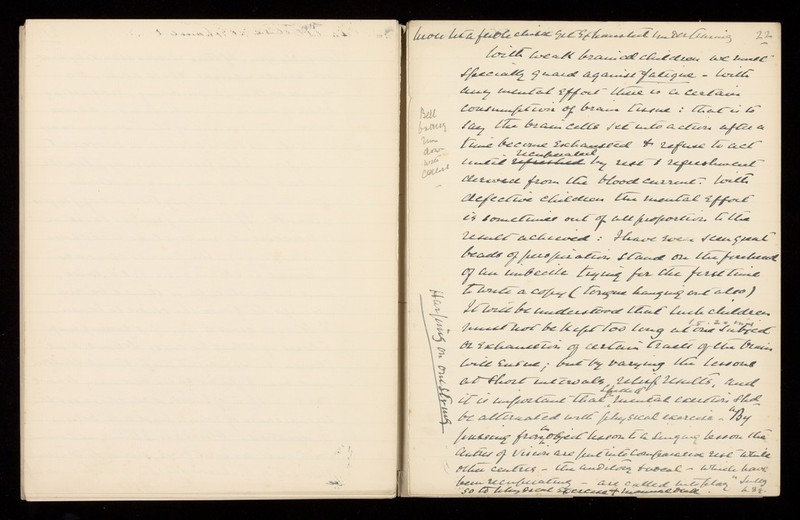 22
With weak brained children we must
specially guard against fatigue - With
any mental effort there is a certain
consumption of brain tissue : that is to
say the brain cells set into action after a
time become exhausted & refuse to act
recuperated
until refreshed by rest & refreshment
derived from the blood current. With
defective children the mental effort
is sometimes out of all proportion to the
result achieved : I have even seen great
beads of perspiration stand on the forehead
of an imbecile trying for the first time
to write a copy (tongue hanging out also)
It will be understood that such children
15-20 min
must not be kept too long at one subject
or exhaustion of certain tracts of the brain
will ensue ; but by varying the lessons
at short intervals, relief results, and
it is important that mental exertion shd
be alternated with physical exercise - "By
passing from object lesson to a singing lesson the
centres of vision are put into comparative rest while
other centres - the auditory & vocal - which have
been recuperating - are called into play" Sully
so to physical exercise & manual work.
Bell
battery
run
down
Harping on one string